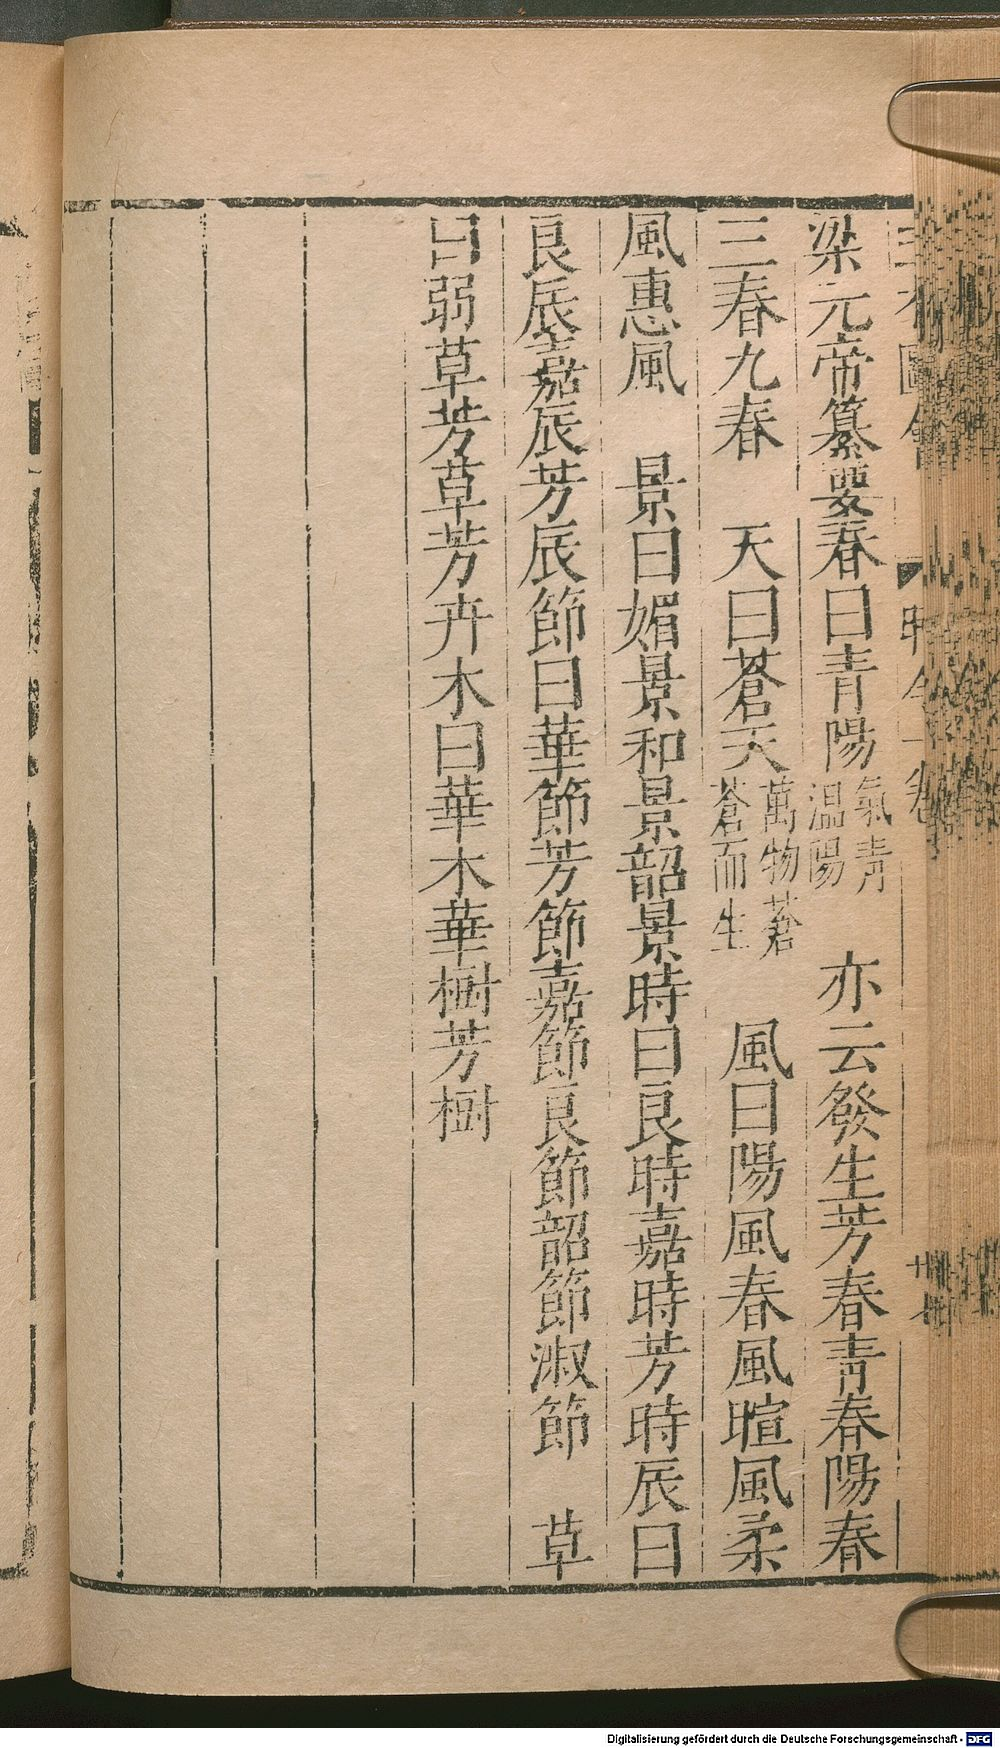 梁元帝纂要春曰青陽氣青溫陽　亦云發生芳春青春陽春
三春九春　天曰蒼天萬物蒼蒼而生　風曰陽風春風暄風柔
風惠風　景曰媚景和景韶景時曰良時嘉時芳時辰曰
良辰嘉辰芳辰節曰華節芳節嘉節良節韶節淑節　草
曰弱草芳草芳卉木曰華木華樹芳樹
Digitalisierung gefördert durch die Deutsche Forschungsgemeinschaft - DFG